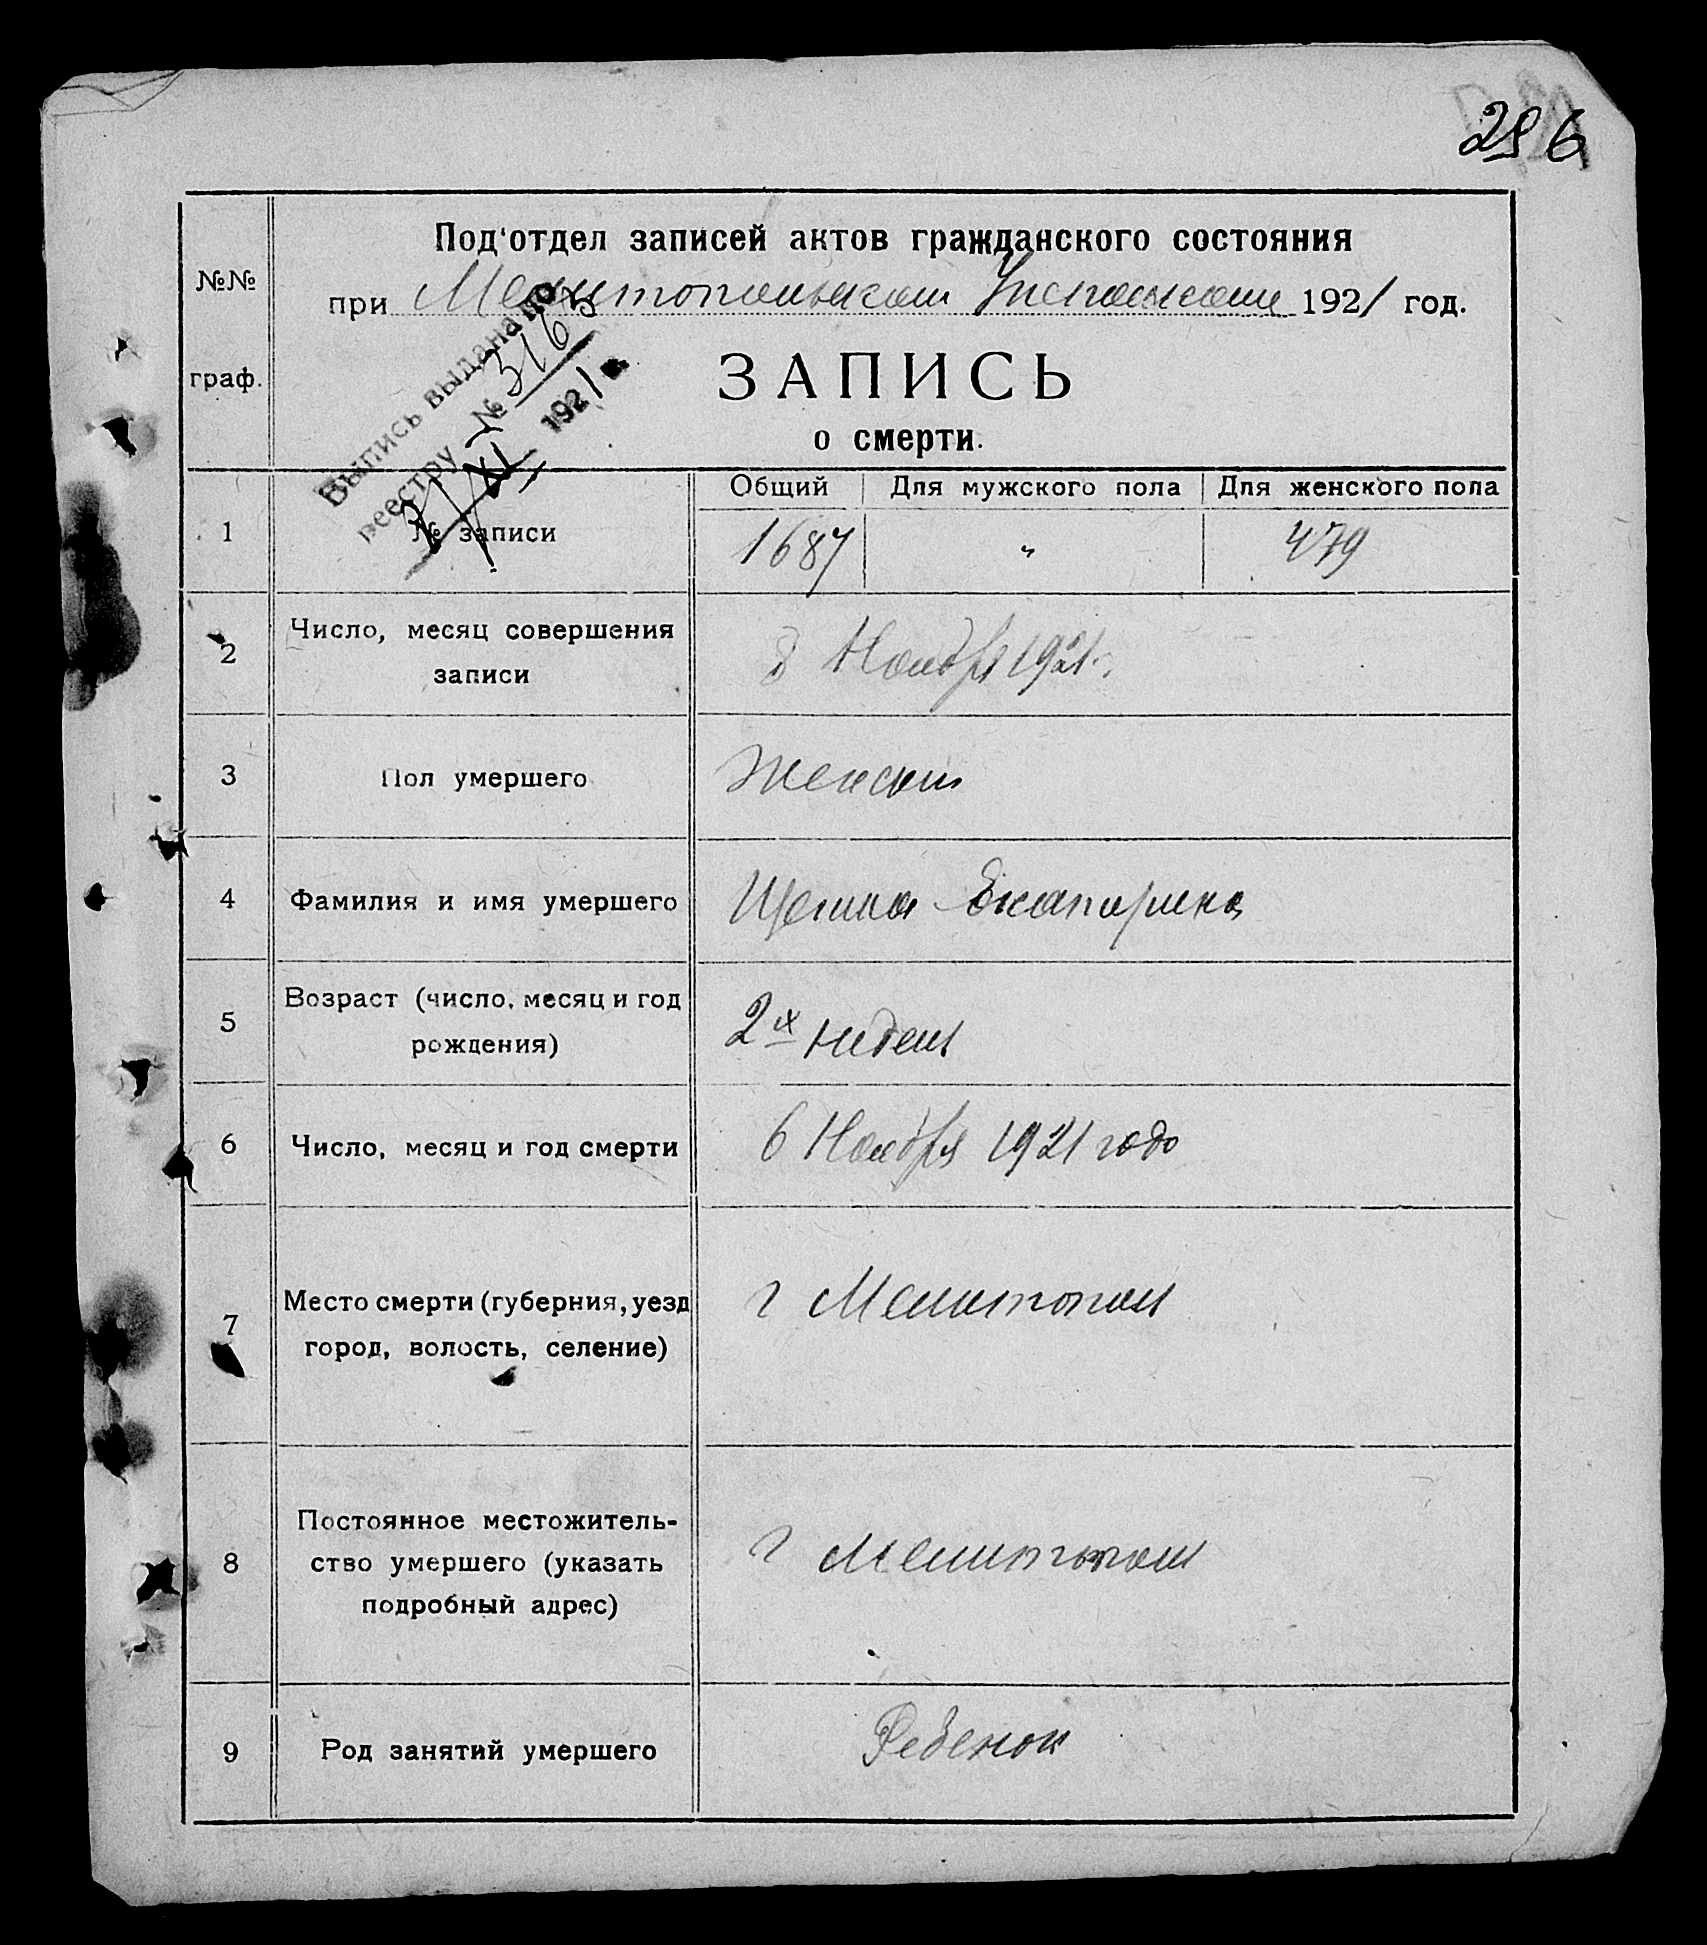 296
Под'отдел записей актов гражданского состояния
№№
при Мелитопольском Уисполкоме 1921 год.
граф.
ЗАПИСЬ
о смерти.
Выпись выдана по
реестру № 3165
7/XI 1921 г.
Общий Для мужского пола Для женского пола
1 № записи 1687 " 479
2 Число, месяц совершения
записи
8 Ноября 1921 г.
3 Пол умершего Женский
4 Фамилия и имя умершего Екатерина
5 Возраст (число, месяц и год
рождения)
2х недель
6 Число, месяц и год смерти 6 Ноября 1921 года
7 Место смерти (губерния, уезд
город, волость, селение)
г Мелитополь
8 Постоянное местожитель-
ство умершего (указать
подробный адрес)
г Мелитополь
9 Род занятий умершего Ребенок